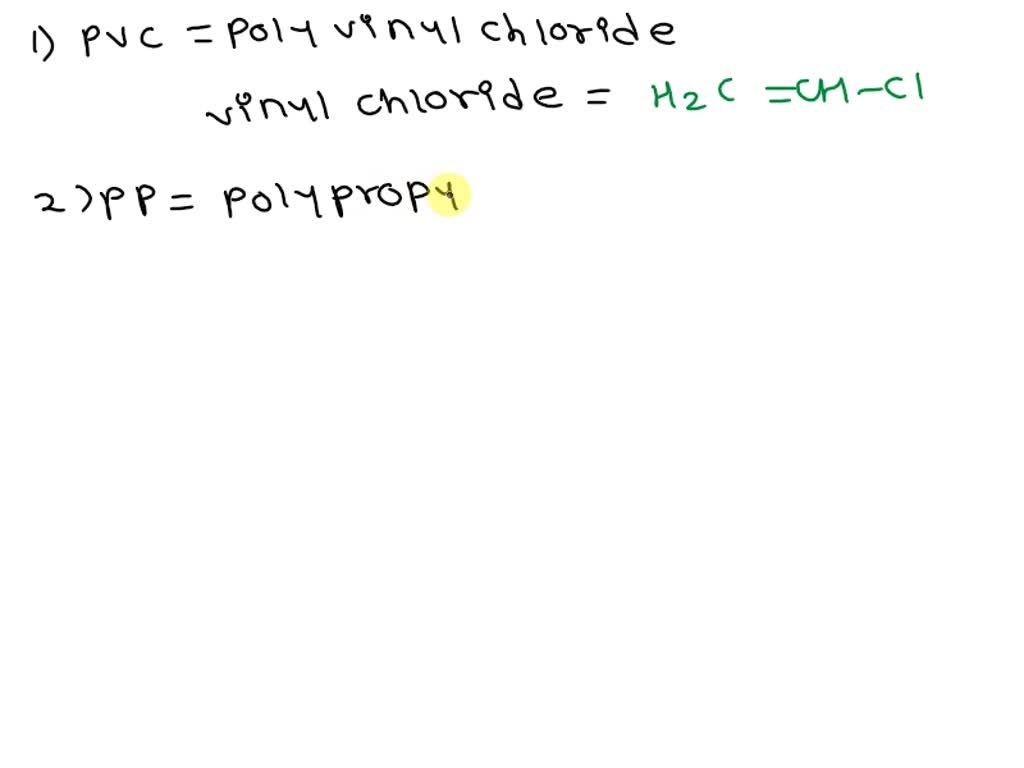 1) PVC = Poly vinyl chloride
vinyl chloride = H2C =CH-Cl
2) PP = Polypropy